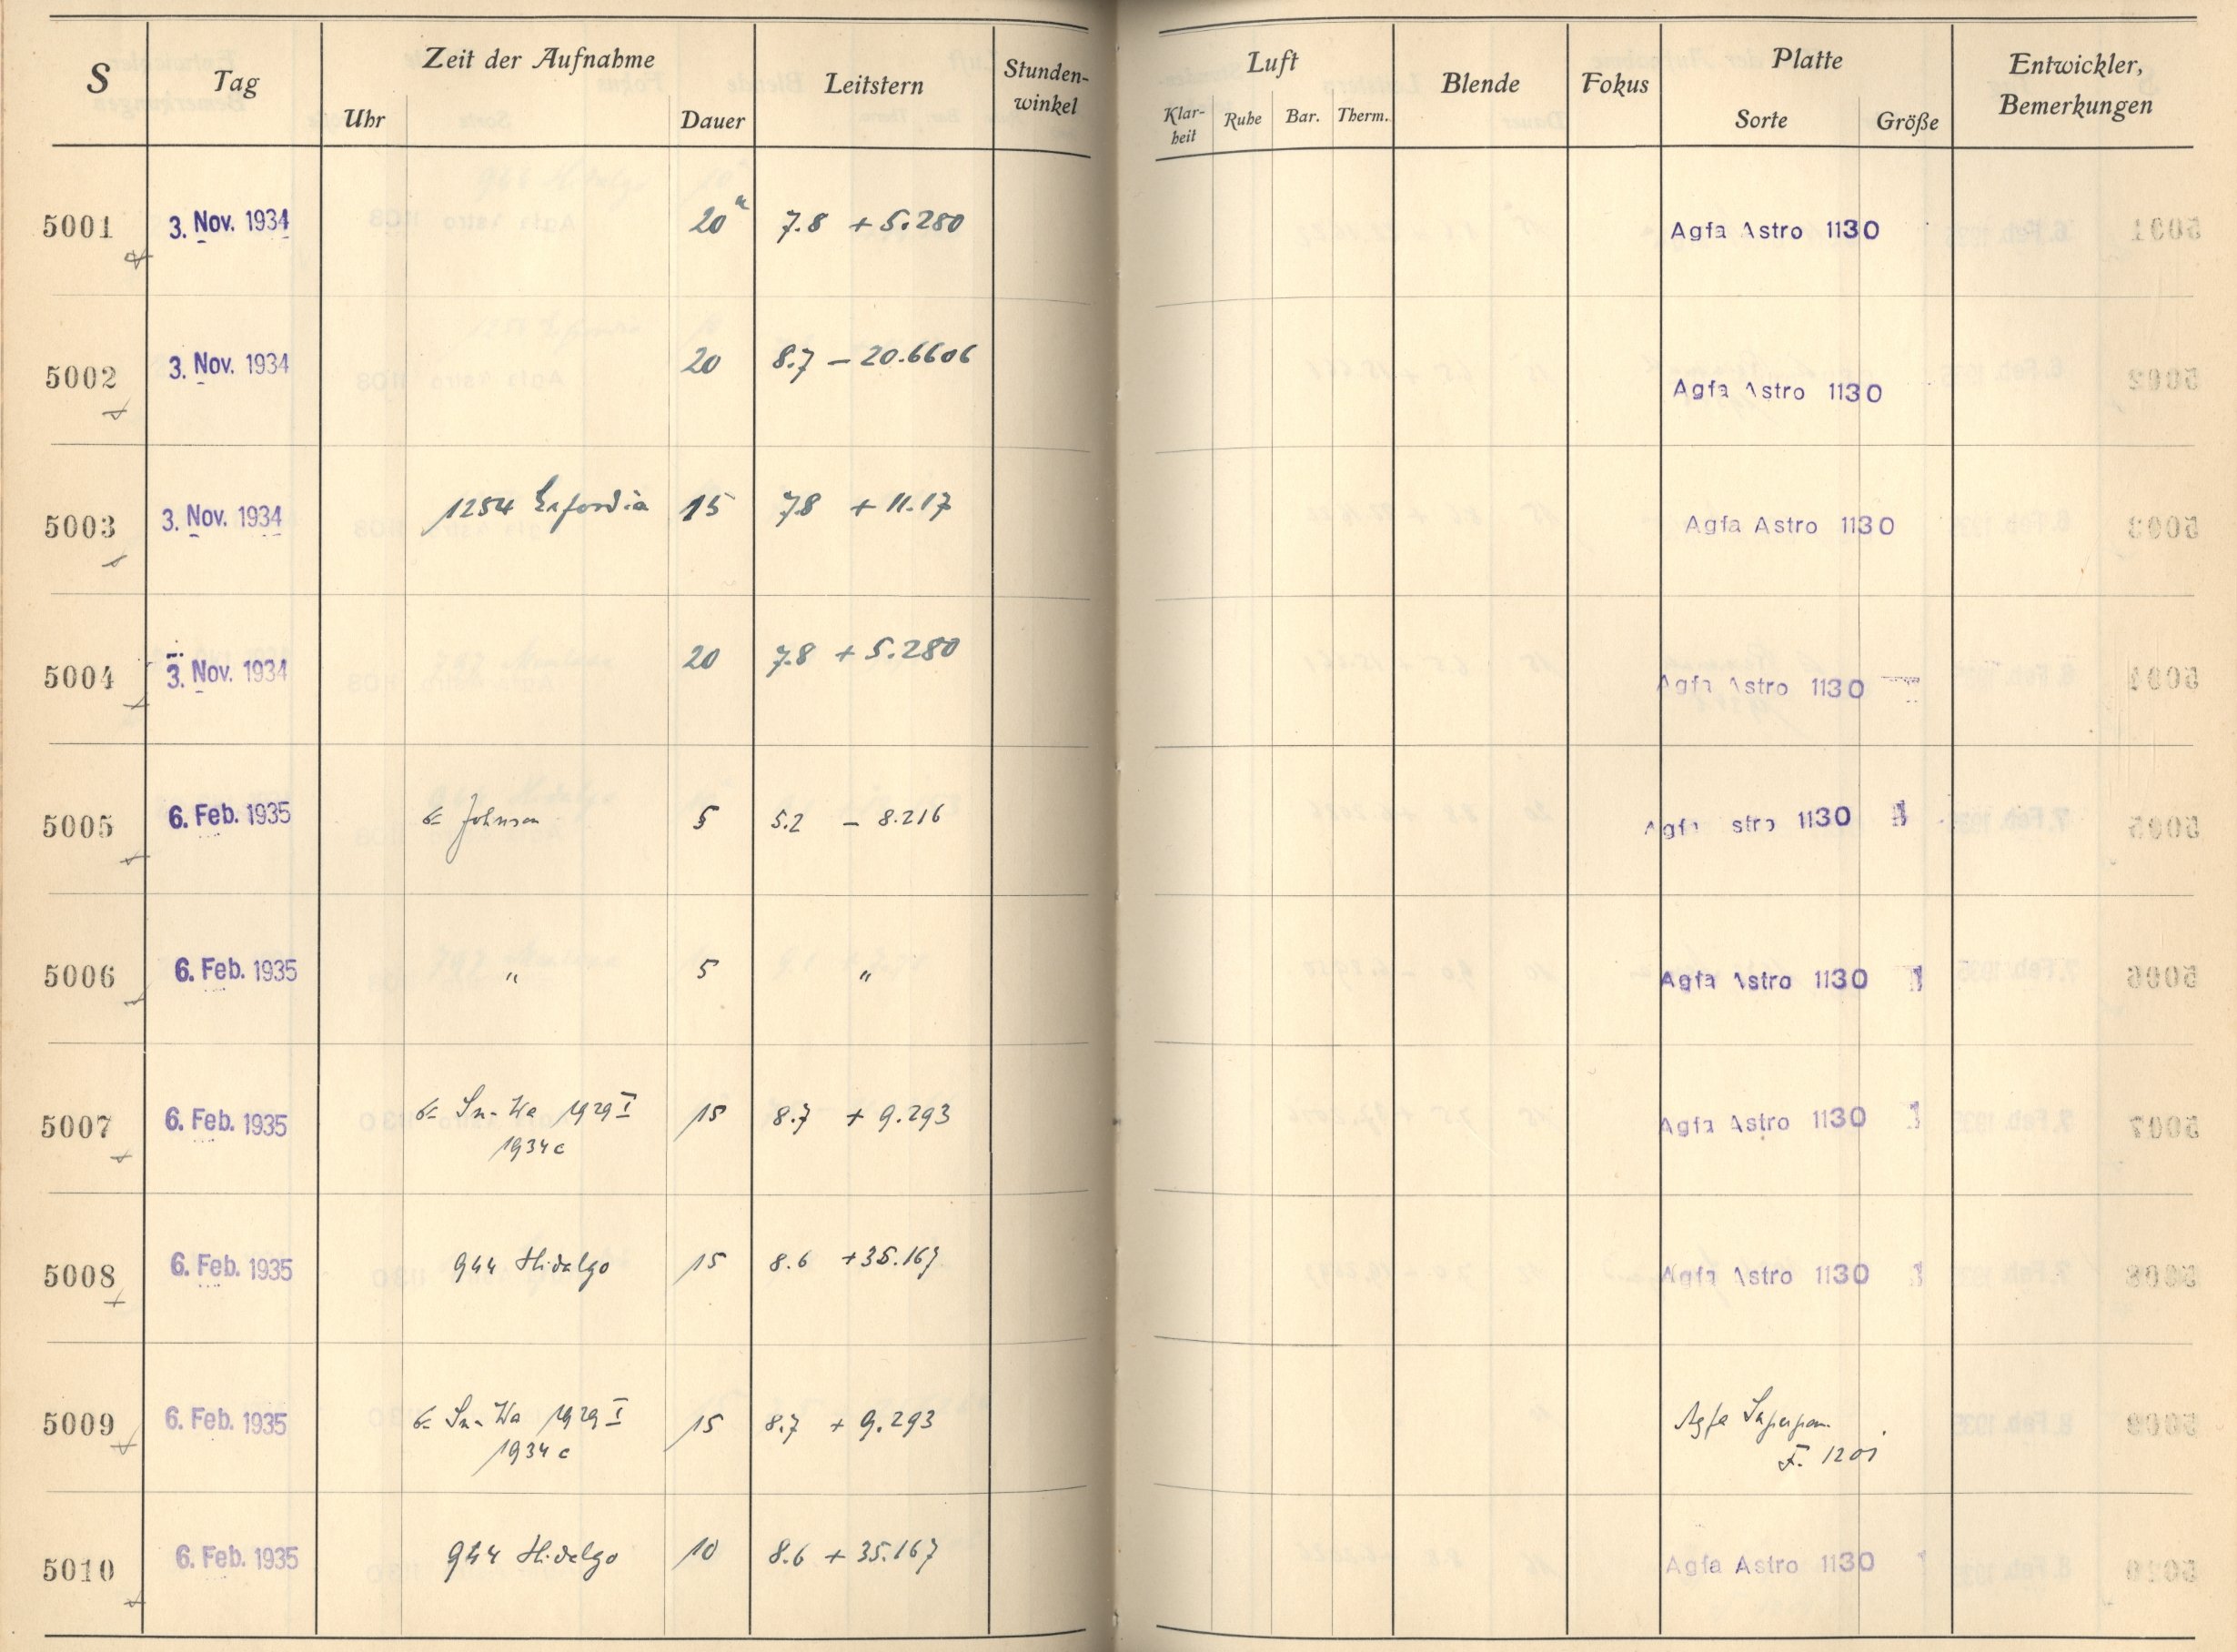 S Tag Zeit der Aufnahme Leitstern Stunden-
winkel Luft Blende Fokus Platte Entwickler,
Bemerkungen
Uhr Dauer Klar-
heit Ruhe Bar. Therm. Sorte Größe
5001 3. Nov. 1934 20 m 7.8 + 5.280 Agfa Astro 1130
5002 3. Nov. 1934 20 8.7 – 20.6606 Agfa Astro 1130
5003 3. Nov. 1934 1254 Erfordia 15 7.8 + 11.17 Agfa Astro 1130
5004 3. Nov. 1934 20 7.8 + 5.280 Agfa Astro 1130
5005 6. Feb. 1935 Johnson 5 5.2 – 8.216 Agfa Astro 1130
5006 6. Feb. 1935 " 5 " Agfa Astro 1130
5007 6. Feb. 1935 Sn-Wa 1929 I 15 8.7 + 9.293 Agfa Astro 1130
1934 c
5008 6. Feb. 1935 944 Hidalgo 15 8.6 + 35.167 Agfa Astro 1130
5009 6. Feb. 1935 Sn-Wa 1929 I 15 8.7 + 9.293 Agfa Superpan
1934 c F. 1201
5010 6. Feb. 1935 944 Hidalgo 10 8.6 + 35.167 Agfa Astro 1130